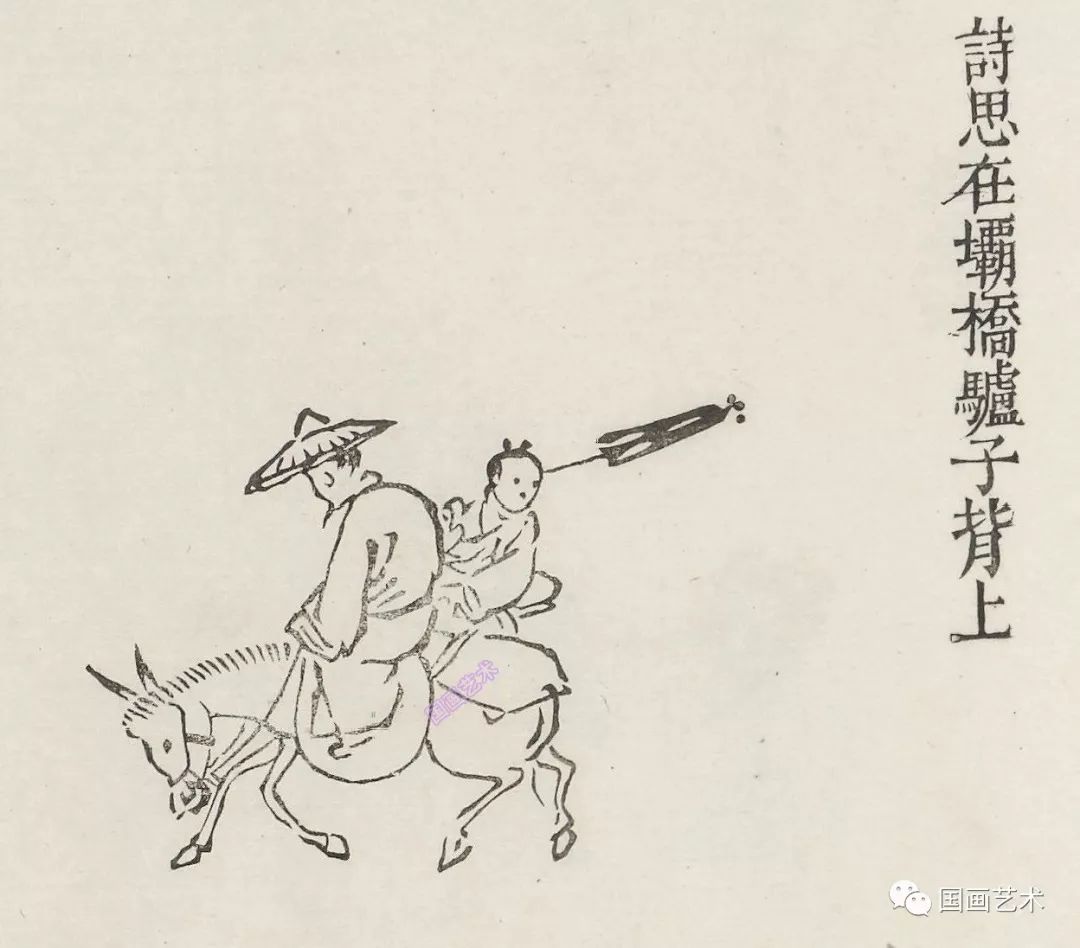 詩思在壩橋驢子背上
国画艺术
国画艺术